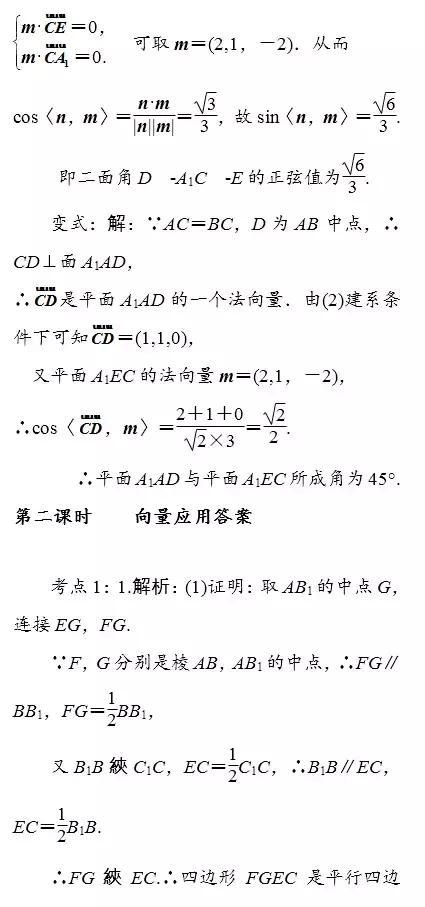 {m·CE=0,
m·CA₁=0. 可取 m=(2,1，-2)．从而
cos〈n，m〉=n·m/|n||m|=√3/3，故 sin〈n，m〉=√6/3.
即二面角 D -A₁C -E 的正弦值为√6/3.
变式：解：∵AC=BC，D 为 AB 中点，∴
CD⊥面 A₁AD，
∴CD是平面 A₁AD 的一个法向量．由(2)建系条
件下可知CD=(1,1,0)，
又平面 A₁EC 的法向量 m=(2,1，-2)，
∴cos〈CD，m〉=2+1+0/√2×3=√2/2.
∴平面 A₁AD 与平面 A₁EC 所成角为 45°.
第二课时 向量应用答案
考点 1：1.解析：(1)证明：取 AB₁ 的中点 G，
连接 EG，FG.
∵F，G 分别是棱 AB，AB₁ 的中点，∴FG∥
BB₁，FG=1/2BB₁，
又 B₁B 綊 C₁C，EC=1/2C₁C，∴B₁B∥EC，
EC=1/2B₁B.
∴FG 綊 EC.∴四边形 FGEC 是平行四边